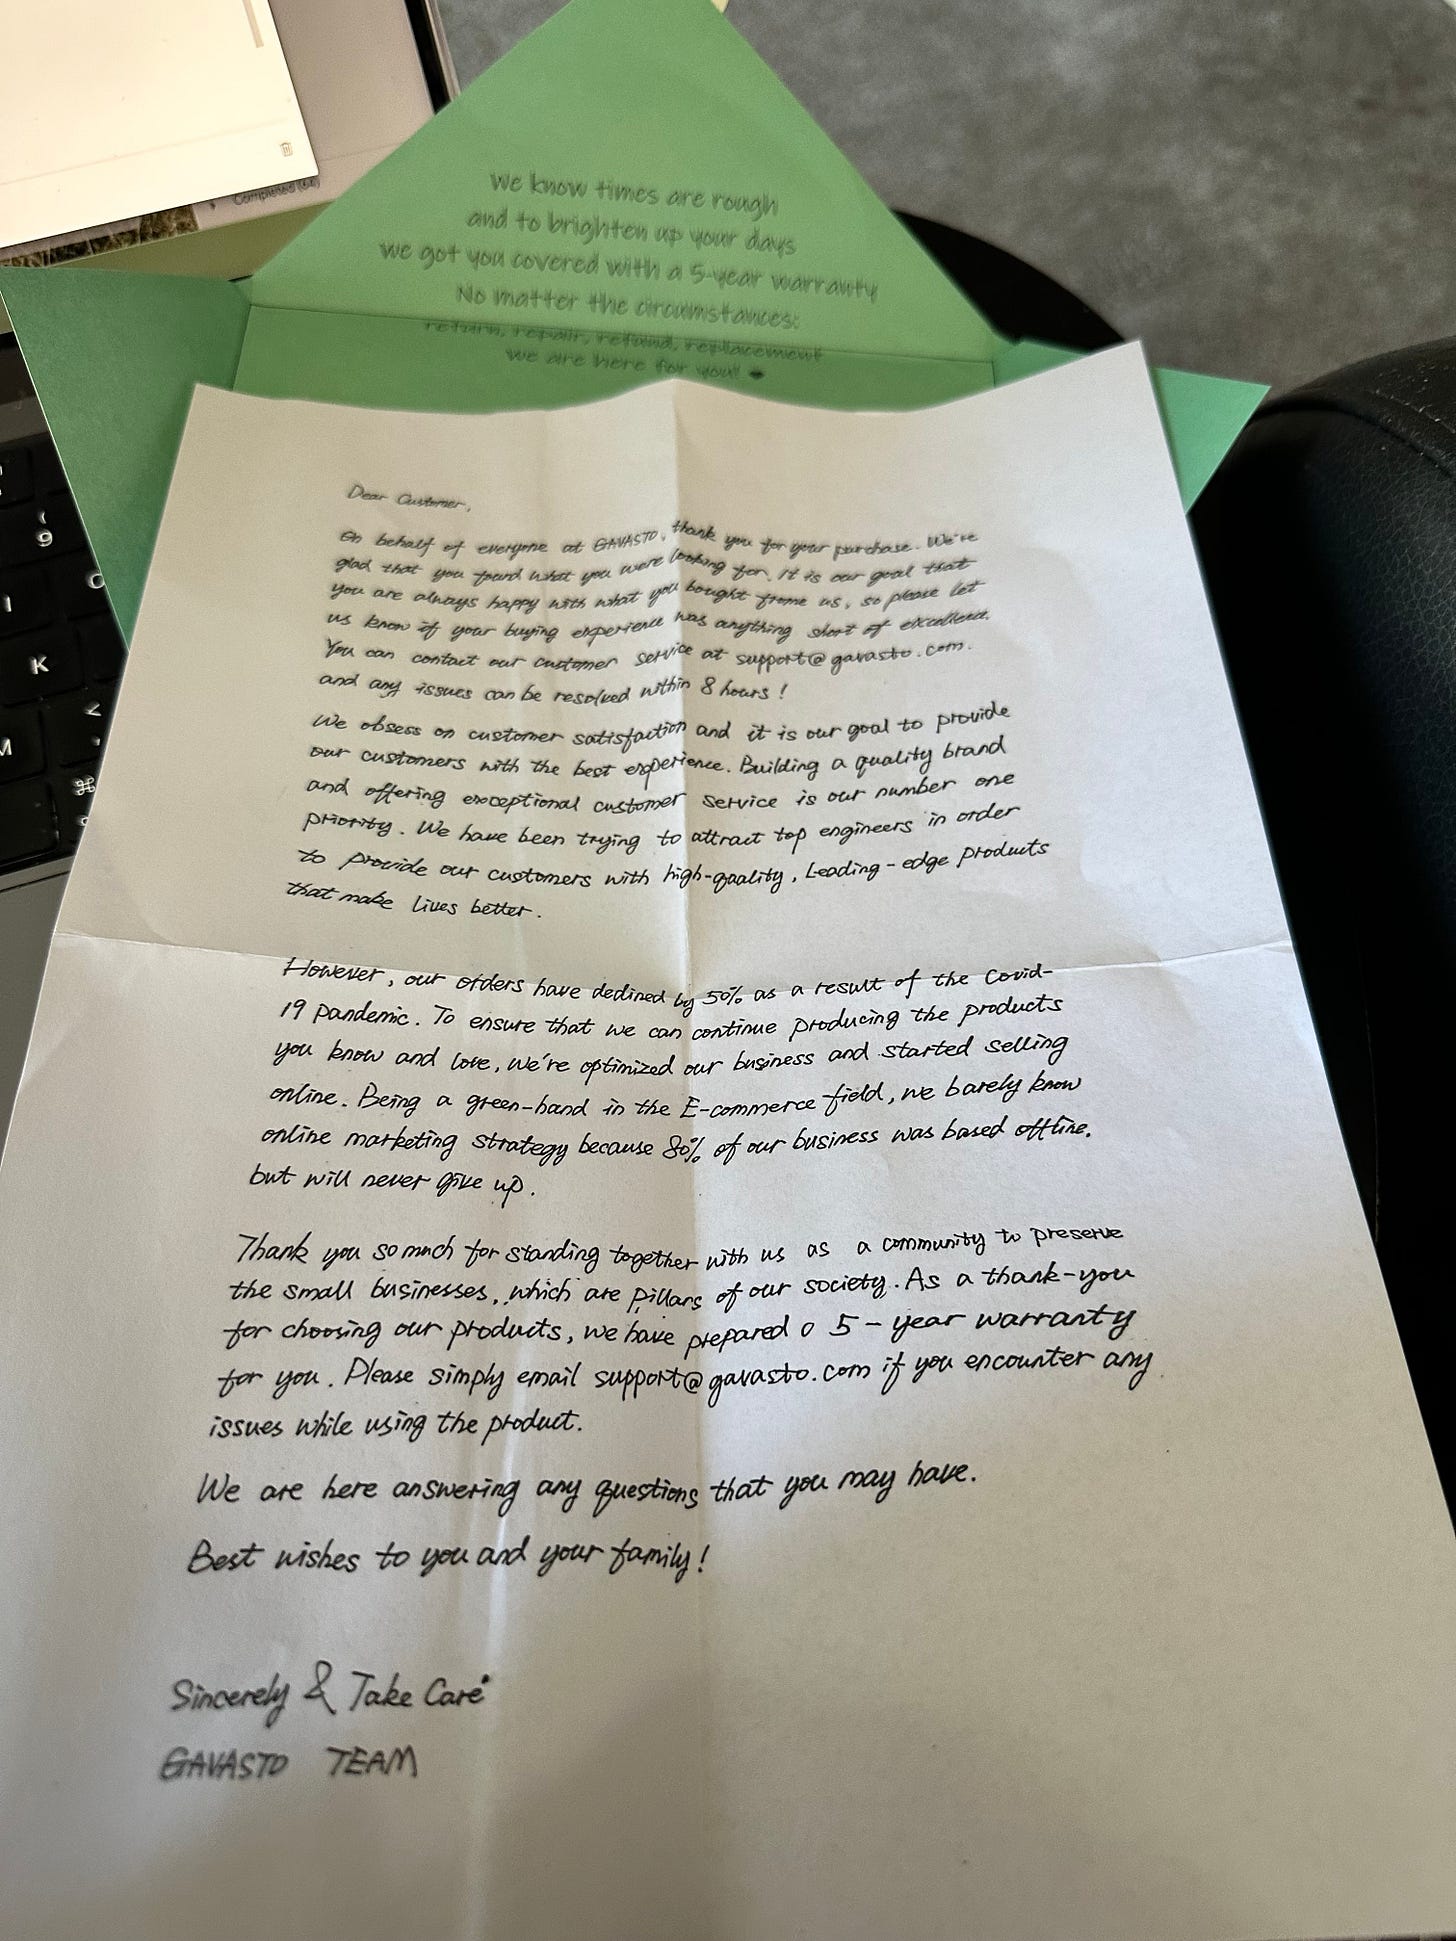 Completed
We know times are rough
and to brighten up your days
we got you covered with a 5-year warranty
No matter the circumstances:
return, repair, refund, replacement
we are here for you!
9
K
M
⌘
Dear Customer,
On behalf of everyone at GAVASTO, thank you for your purchase. We're
glad that you found what you were looking for. It is our goal that
you are always happy with what you bought frome us, so please let
us know if your buying experience was anything short of excellence.
You can contact our customer service at support@gavasto.com.
and any issues can be resolved within 8 hours!
We obsess on customer satisfaction and it is our goal to provide
our customers with the best experience. Building a quality brand
and offering exceptional customer service is our number one
priority. We have been trying to attract top engineers in order
to provide our customers with high-quality, Leading-edge products
that make lives better.
However, our orders have declined by 50% as a result of the Covid-
19 pandemic. To ensure that we can continue producing the products
you know and love, we're optimized our business and started selling
online. Being a green-hand in the E-commerce field, we barely know
online marketing strategy because 80% of our business was based offline.
but will never give up.
Thank you so much for standing together with us as a community to preserve
the small businesses, which are pillars of our society. As a thank-you
for choosing our products, we have prepared a 5-year warranty
for you. Please simply email support@gavasto.com if you encounter any
issues while using the product.
We are here answering any questions that you may have.
Best wishes to you and your family!
Sincerely & Take Care
GAVASTO TEAM